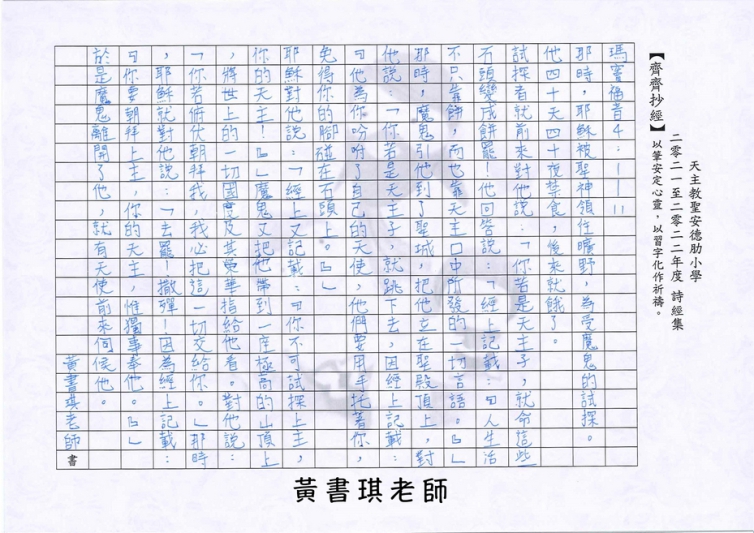 天主教聖安德肋小學
二零二一至二零二二年度 詩經集
【齊齊抄經】以筆安定心靈，以習字化作祈禱。
瑪竇福音4：1－11
那時，耶穌被聖神領往曠野，為受魔鬼的試探。
他四十天四十夜禁食，後來就餓了。
試探者就前來對他說：「你若是天主子，就命這些
石頭變成餅罷！他回答說：「經上記載：『人生活
不只靠餅，而也靠天主口中所發的一切言語。』」
那時，魔鬼引他到了聖城，把他立在聖殿頂上，對
他說：「你若是天主子，就跳下去，因經上記載：
『他為你吩咐了自己的天使，他們要用手托著你，
免得你的腳碰在石頭上。』」
耶穌對他說：「經上又記載：『你不可試探上主，
你的天主！』」魔鬼又把他帶到一座極高的山頂上
，將世上的一切國度及其榮華指給他看。對他說：
「你若俯伏朝拜我，我必把這一切交給你。」那時
，耶穌就對他說：「去罷！撒殫！因為經上記載：
『你要朝拜上主，你的天主，惟獨事奉他。』」
於是魔鬼離開了他，就有天使前來伺候他。
黃書琪老師 書
黃書琪老師